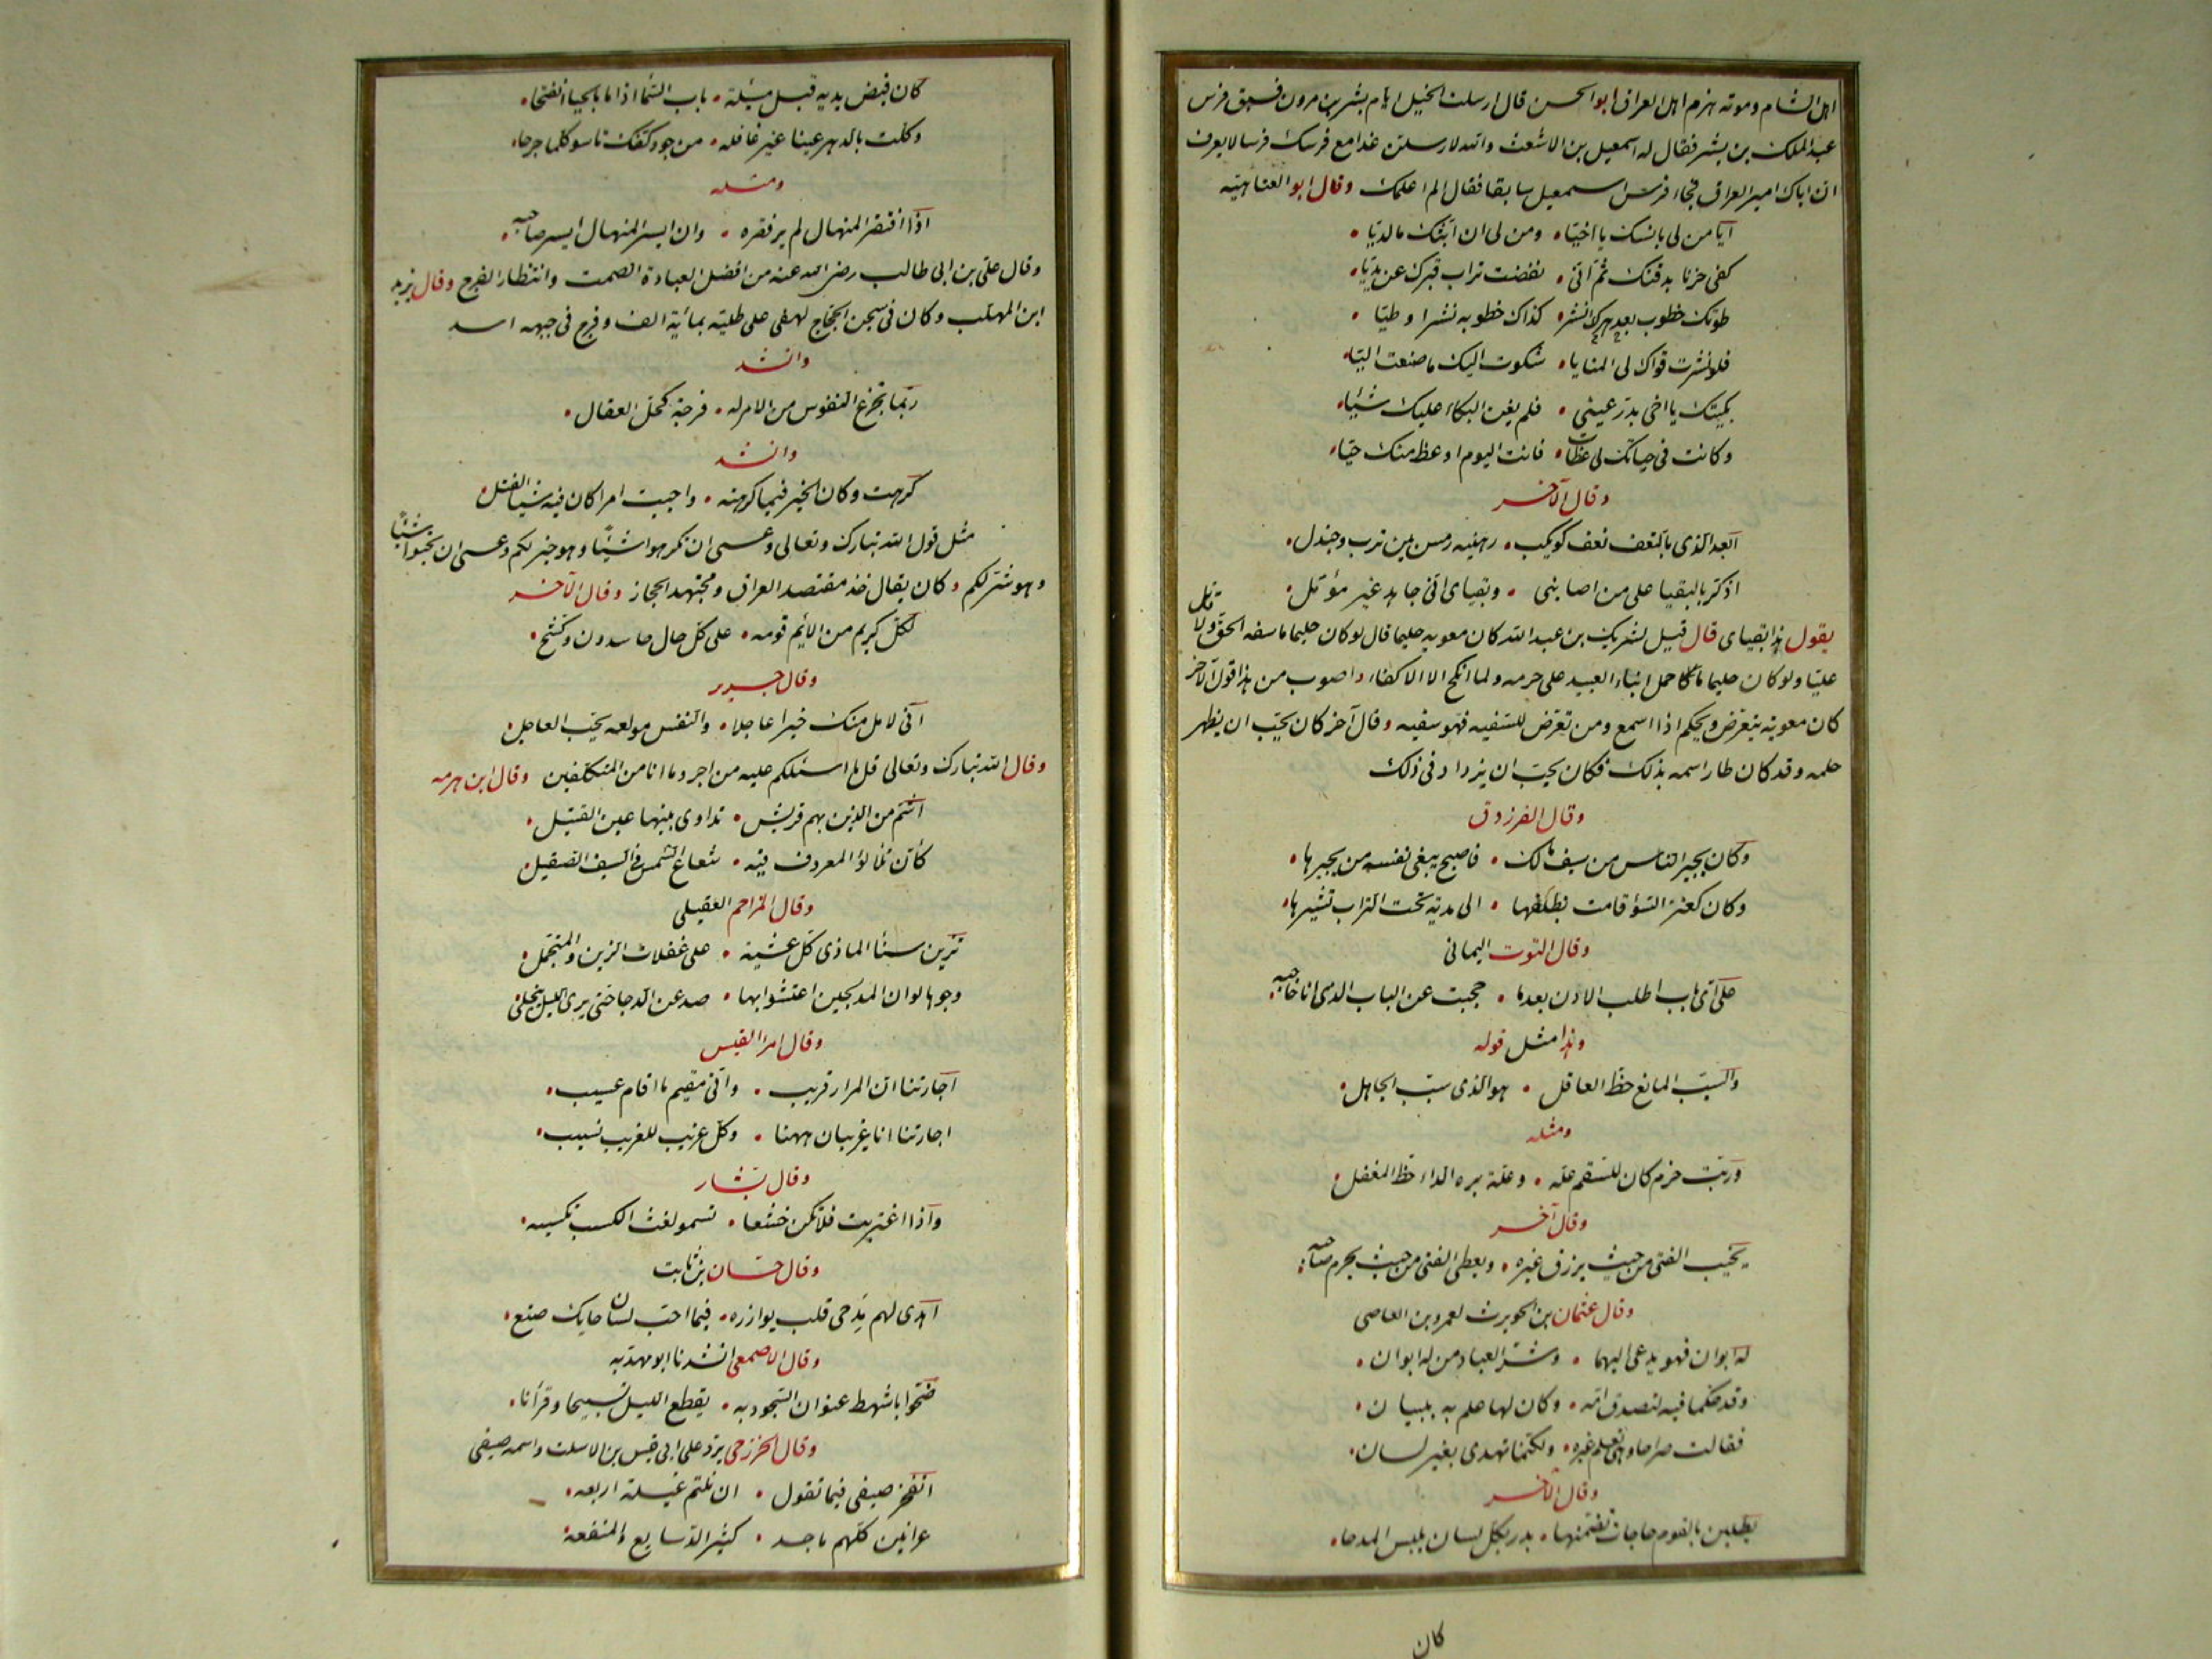 اهل الشام وموته هزم اهل العراق ابو الحسن قال ارسلت الخيل ايام بشر بن مرون فسبق فرس
عبد الملك بن بشر فقال له اسمعيل بن الاشعث والله لارسلن غدا مع فرسك فرسا لا يعرف
ان اباك امير العراق فجاء فرس اسمعيل سابقا فقال الم اعلمك وقال ابو العتاهيّه
آيا من لى بانسك يا اخيّا ومن لى ان ابثّك ما لديّا
كفى حزنا بدفنك ثمّ انّى نفضت تراب قبرك عن يديّا
طوتك خطوب بعد نشر كذاك خطوبه نشرا وطيّا
فلو نشرت قواك لى المنايا شكوت اليك ما صنعت اليّا
بكيتك يا اخى بدرّ عينى فلم يغن البكاء عليك شيئا
وكانت فى حياتك لى عظات فانت اليوم اوعظ منك حيّا
وقال الآخر
ابعد الذى بالنعف نعف كويكب رهينه رمس بين ترب وجندل
اذكر بالبقيا على من اصابنى وبقياى انّى جاهد غير مؤتل
يقول هذا بقياى قال قيل لشريك بن عبد الله كان معويه حليما قال لو كان حليما ما سفه الحق ولا قاتل
عليّا ولو كان حليما ما حمل ابناء العبيد على حرمه ولما انكح الا الاكفاء واصوب من هذا قول الآخر
كان معويه يتعرّض ويحكم اذا اسمع ومن تعرّض للسّفيه فهو سفيه وقال آخر كان يحبّ ان يظهر
حلمه وقد كان طار اسمه بذلك فكان يحبّ ان يزداد فى ذلك
وقال الفرزدق
وكان يجير الناس من سيف مالك فاصبح يبغى نفسه من يجيرها
وكان كعنز السّؤ قامت بظلفها الى مدية تحت التراب تثيرها
وقال التوت اليمانى
على اىّ باب اطلب الاذن بعد ما حجبت عن الباب الذى انا حاجبه
وهذا مثل قوله
والسبّب المانع حظّ العاقل هو الذى سبّب الجاهل
ومثله
وربّت حزم كان للسّقم علّه وعلّة برء الداء حظّ المغفل
وقال آخر
يخيّب الفتى من حيث يرزق غيره ويعطى الفتى من حيث يحرم صاحبه
وقال عثمان بن الحويرث لعمرو بن العاصى
له ابوان فهو يدعى اليهما وشرّ العباد من له ابوان
وقد حكّما فيه لتصدق امّه وكان لها علم به ببيان
فقالت صراحا وهى تعلم غيره ولكنّما تهذى بغير لسان
وقال الآخر
يطلبن بالقوم حاجات تضمّنها بدر بكلّ لسان يلبس المدحا
كان
كان فيض يديه قبل مسئلة باب السّما اذا ما بالحيا انفتحا
وكلت بالدهر عينا غير غافله من جود كفّك تاسو كلما جرحا
ومثله
اذا افتقر المنهال لم ير فقره وان ايسر المنهال ايسر صاحبه
وقال علىّ بن ابى طالب رضى الله عنه من افضل العبادة الصمت وانتظار الفرج وقال يزيد
ابن المهلب وكان فى سجن الحجّاج لهفى على طليّه بمأية الف وفرج فى جبهه اسد
وانشد
ربّما تجزع النفوس من الامر له فرجة كحلّ العقال
وانشد
كرهت وكان الخير فيما كرهته واحببت امرا كان فيه شبا القتل
مثل قول الله تبارك وتعالى وعسى ان تكرهوا شيئًا وهو خير لكم وعسى ان تحبّوا شيئًا
وهو شرّ لكم وكان يقال خذ مقتصد العراق ومجتهد الحجاز وقال الآخر
لكلّ كريم من الائم قومه على كلّ حال حاسدون وكشّح
وقال جرير
انّى لامل منك خيرا عاجلا والنفس مولعه بحبّ العاجل
وقال الله تبارك وتعالى قل ما اسئلكم عليه من اجر وما انا من المتكلّفين وقال ابن هرمه
اشمّ من الذين بهم قريش تداوى بينها عين القتيل
كأنّ تلألؤ المعروف فيه شعاع الشمس فى السيف الصّقيل
وقال المزاحم العقيلى
تزين سنأ الماذى كلّ عشيّه على غفلات الزين والمتجمّل
وجوها لو ان المدلجين اعتشوا بها صدعن الدجا حتى يرى الليل ينجلى
وقال امرأ القيس
اجارتنا انّ المزار قريب وانّى مقيم ما اقام عسيب
اجارتنا انا غريبان ههنا وكلّ غريب للغريب نسيب
وقال بشّار
واذا اغتربت فلا تكن خشعا تسمو لغث الكسب تكسبه
وقال حسّان بن ثابت
اهدى لهم مدحى قلب يوازره فيما احبّ لسان حايك صنع
وقال الاصمعى انشدنا ابو مهديه
ضحّوا باشمط عنوان السّجود به يقطع الليل تسبيحا وقرأنا
وقال الخزرجى يردّ على ابى قيس بن الاسلت واسمه صيفى
اتفخر صيفى فيما تقول ان نلتم غيلة اربعه
عرانين كلّهم ماجد كثير الدّسايع والمنفعه